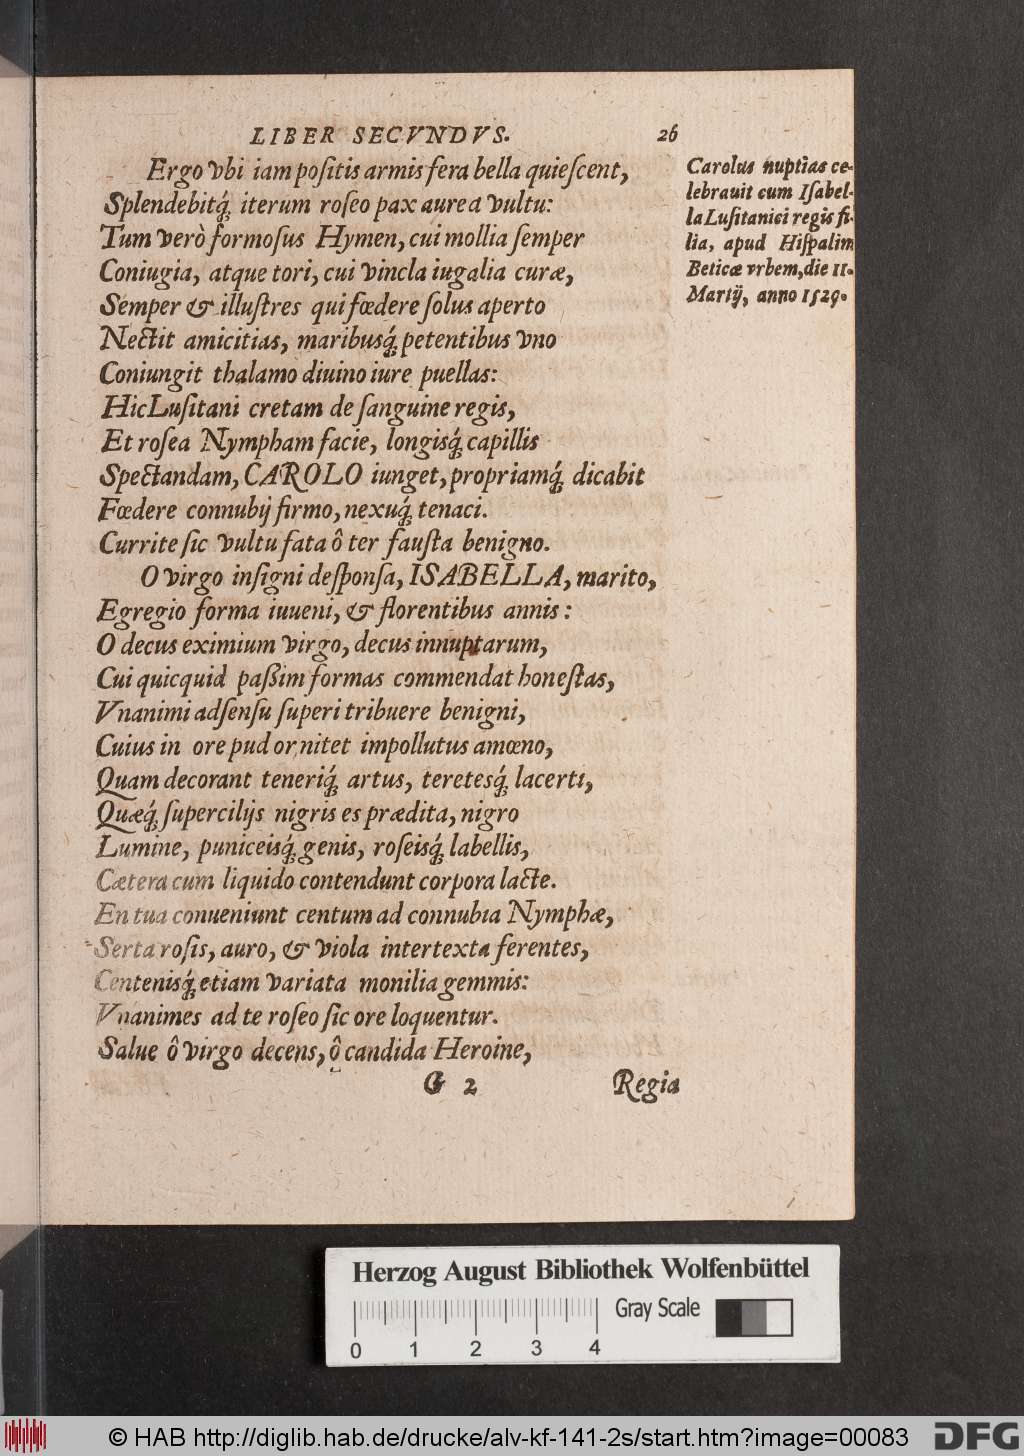 LIBER SECVNDVS. 26
Ergo vbi iam poſitis armis fera bella quieſcent,
Splendebitq́; iterum roſeo pax aurea vultu:
Tum verò formoſus Hymen, cui mollia ſemper
Coniugia, atque tori, cui vincla iugalia curæ,
Semper & illuſtres qui fœdere ſolus aperto
Nectit amicitias, maribusq́; petentibus vno
Coniungit thalamo diuino iure puellas:
Hic Luſitani cretam de ſanguine regis,
Et roſea Nympham facie, longisq́; capillis
Spectandam, CAROLO iunget, propriamq́; dicabit
Fœdere connubij firmo, nexuq́; tenaci.
Currite ſic vultu fata ô ter fauſta benigno.
O virgo inſigni deſponſa, ISABELLA, marito,
Egregio forma iuueni, & florentibus annis:
O decus eximium virgo, decus innuptarum,
Cui quicquid paßim formas commendat honeſtas,
Vnanimi adſenſu ſuperi tribuere benigni,
Cuius in ore pudor nitet impollutus amœno,
Quam decorant teneriq́; artus, teretesq́; lacerti,
Quæq́; ſupercilijs nigris es prædita, nigro
Lumine, puniceisq́; genis, roſeisq́; labellis,
Cætera cum liquido contendunt corpora lacte.
En tua conueniunt centum ad connubia Nymphæ,
Serta roſis, auro, & viola intertexta ferentes,
Centenisq́; etiam variata monilia gemmis:
Vnanimes ad te roſeo ſic ore loquentur.
Salue ô virgo decens, ô candida Heroine,
G 2 Regia
Carolus nuptias ce-
lebrauit cum Iſabel-
la Luſitanici regis fi-
lia, apud Hiſpalim
Beticæ vrbem, die 11.
Martij, anno 1525.
Herzog August Bibliothek Wolfenbüttel
Gray Scale
0 1 2 3 4
© HAB http://diglib.hab.de/drucke/alv-kf-141-2s/start.htm?image=00083
DFG